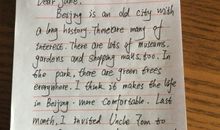 Dear Jane,
Beijing is an old city with
a long history. There are many of
interest. There are lots of museums,
gardens and shopping malls, too. In
the park, there are green trees
everywhere. I think it makes the life
in Beijing more comfortable. Last
month, I invited Uncle Tom to